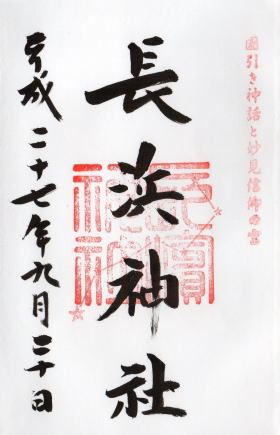 國引き神話と妙見信仰の宮
長浜神社
平成二十七年九月二十日